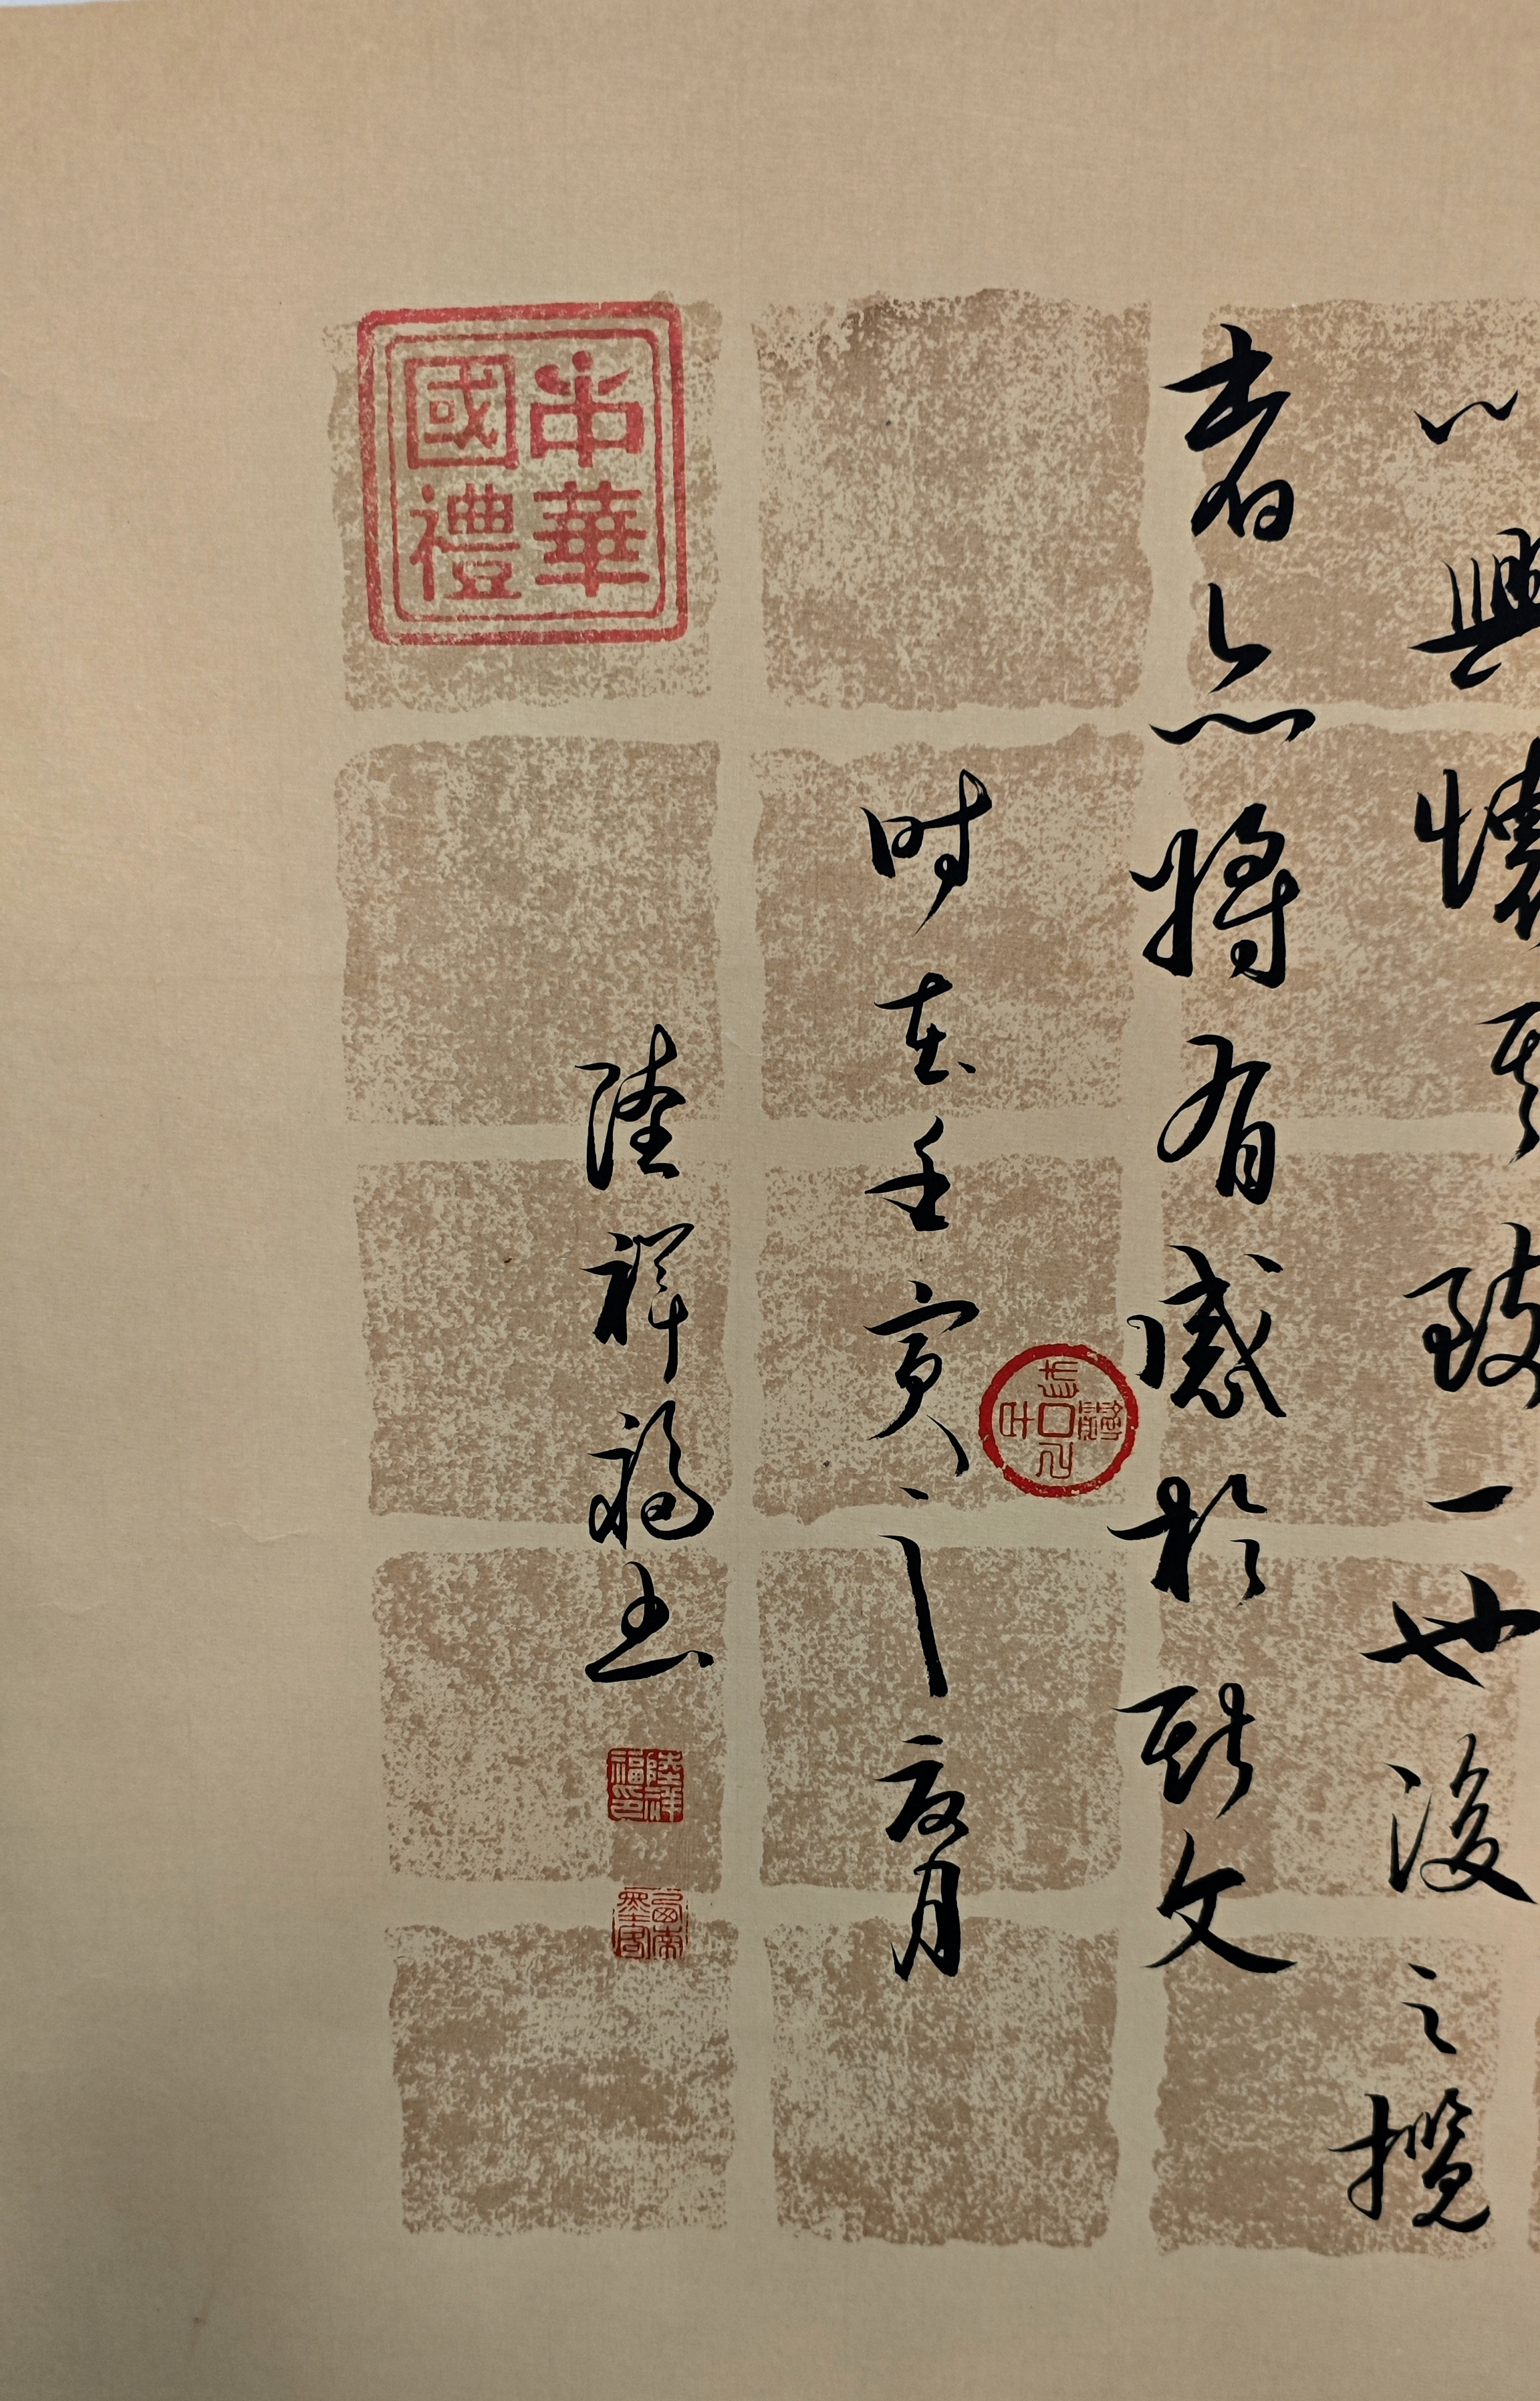 以興懷其致一也後之攬
者亦將有感於斯文
时在壬寅之夏月
陸祥福书
中華
國禮
陸祥
福印